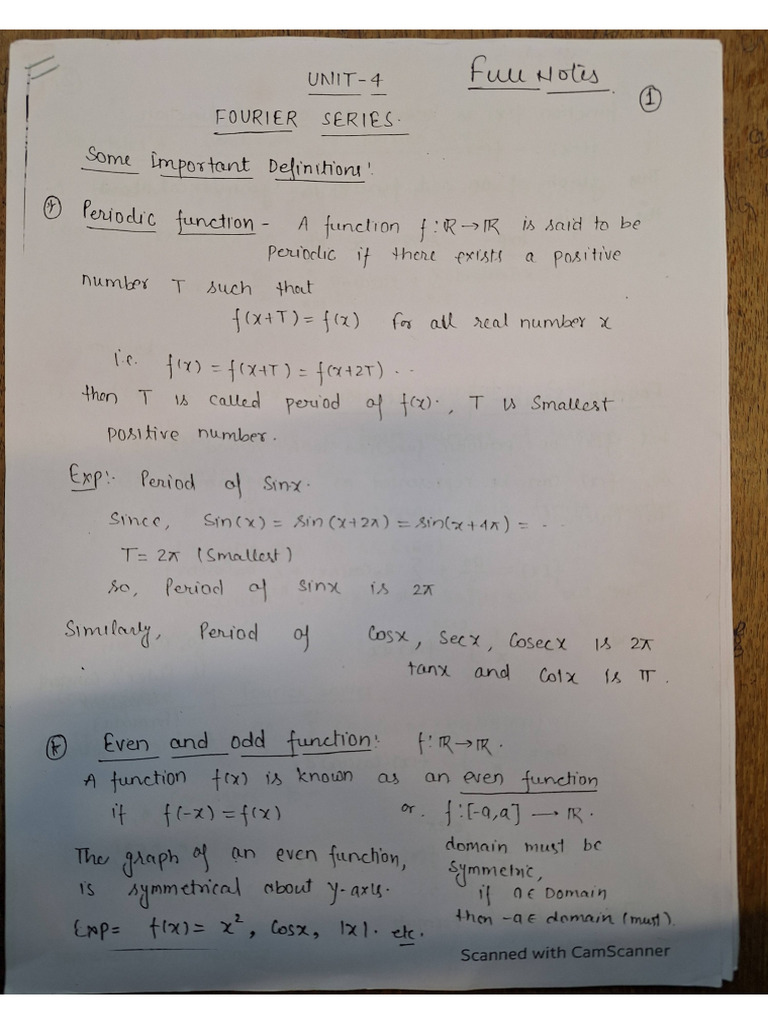 UNIT-4
Full Notes
①
FOURIER SERIES.
Some Important Definitions:
* Periodic function - A function f: ℝ→ℝ is said to be
Periodic if there exists a positive
number T such that
f(x+T) = f(x) for all real number x
i.e. f(x) = f(x+T) = f(x+2T) ..
then T is called period of f(x)., T is Smallest
positive number.
Exp:- Period of Sinx.
Since, Sin(x) = sin(x+2π) = sin(x+4π) = ..
T = 2π (Smallest)
so, Period of sinx is 2π
Similarly, Period of Cosx, Secx, Cosecx is 2π
tanx and Cotx is π.
* Even and odd function: f: ℝ→ℝ.
A function f(x) is known as an even function
if f(-x) = f(x) or. f: [-a,a] → ℝ.
The graph of an even function,
is symmetrical about y-axis.
domain must be
Symmetric,
if a ∈ Domain
then -a ∈ domain (must).
Exp = f(x) = x², Cosx, |x|. etc.
Scanned with CamScanner